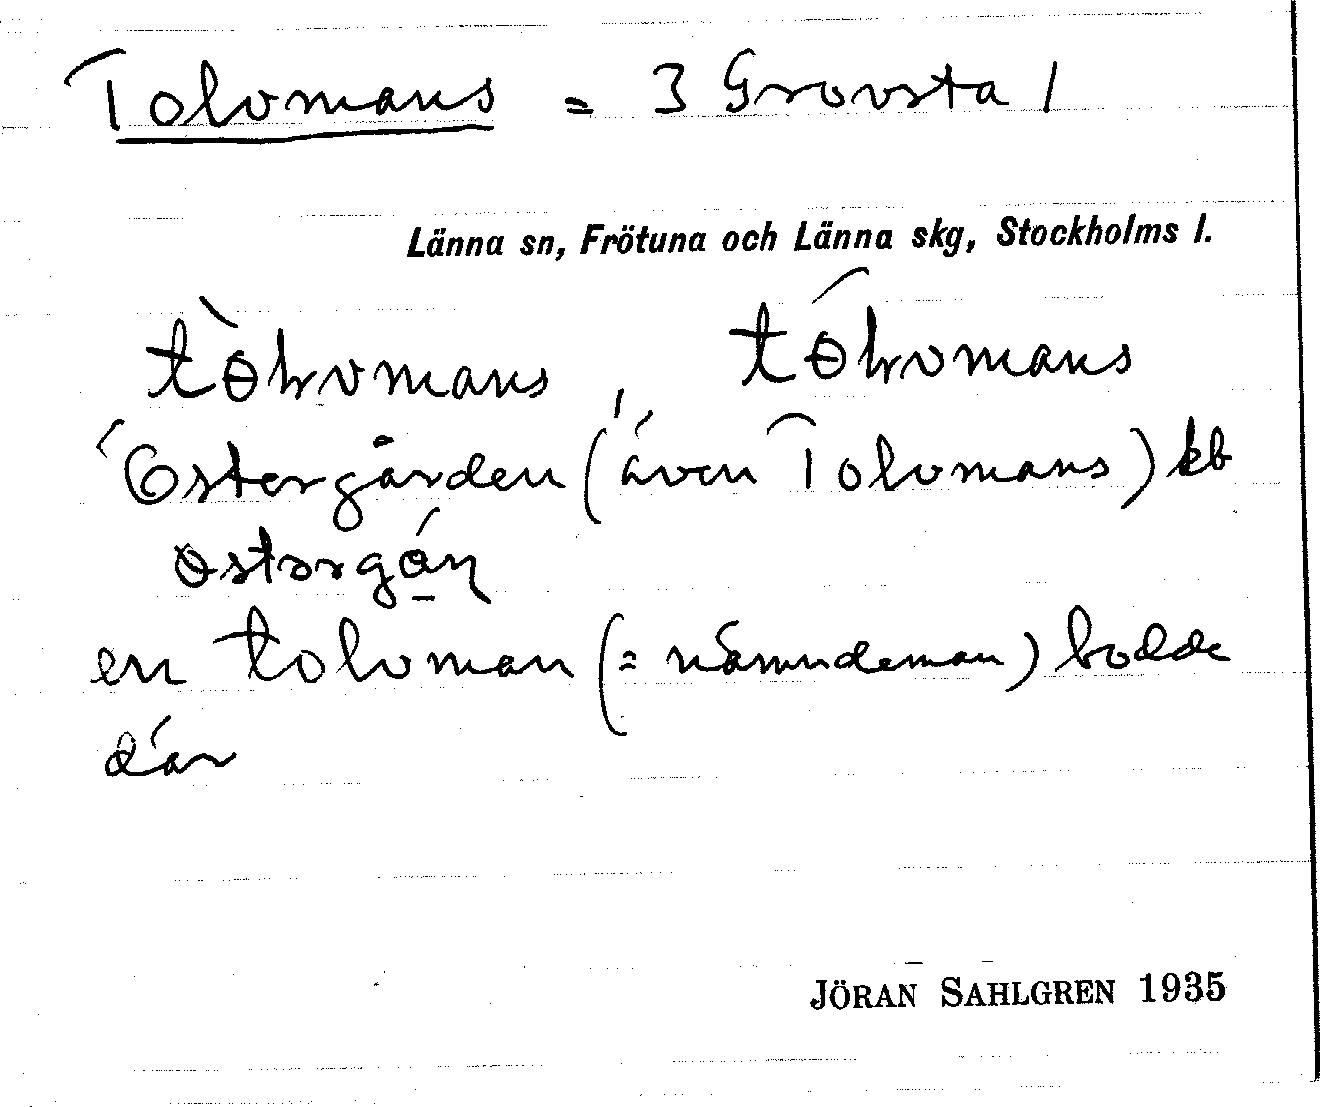 Tolvmans = 3 Grovsta 1
Länna sn, Frötuna och Länna skg, Stockholms l.
tɵ̀lvmans, tɵ́lvmans
Östergården (även Tolvmans) kb
østərgá̱ɳ
en tolvman (= nämndeman) bodde
där
JÖRAN SAHLGREN 1935